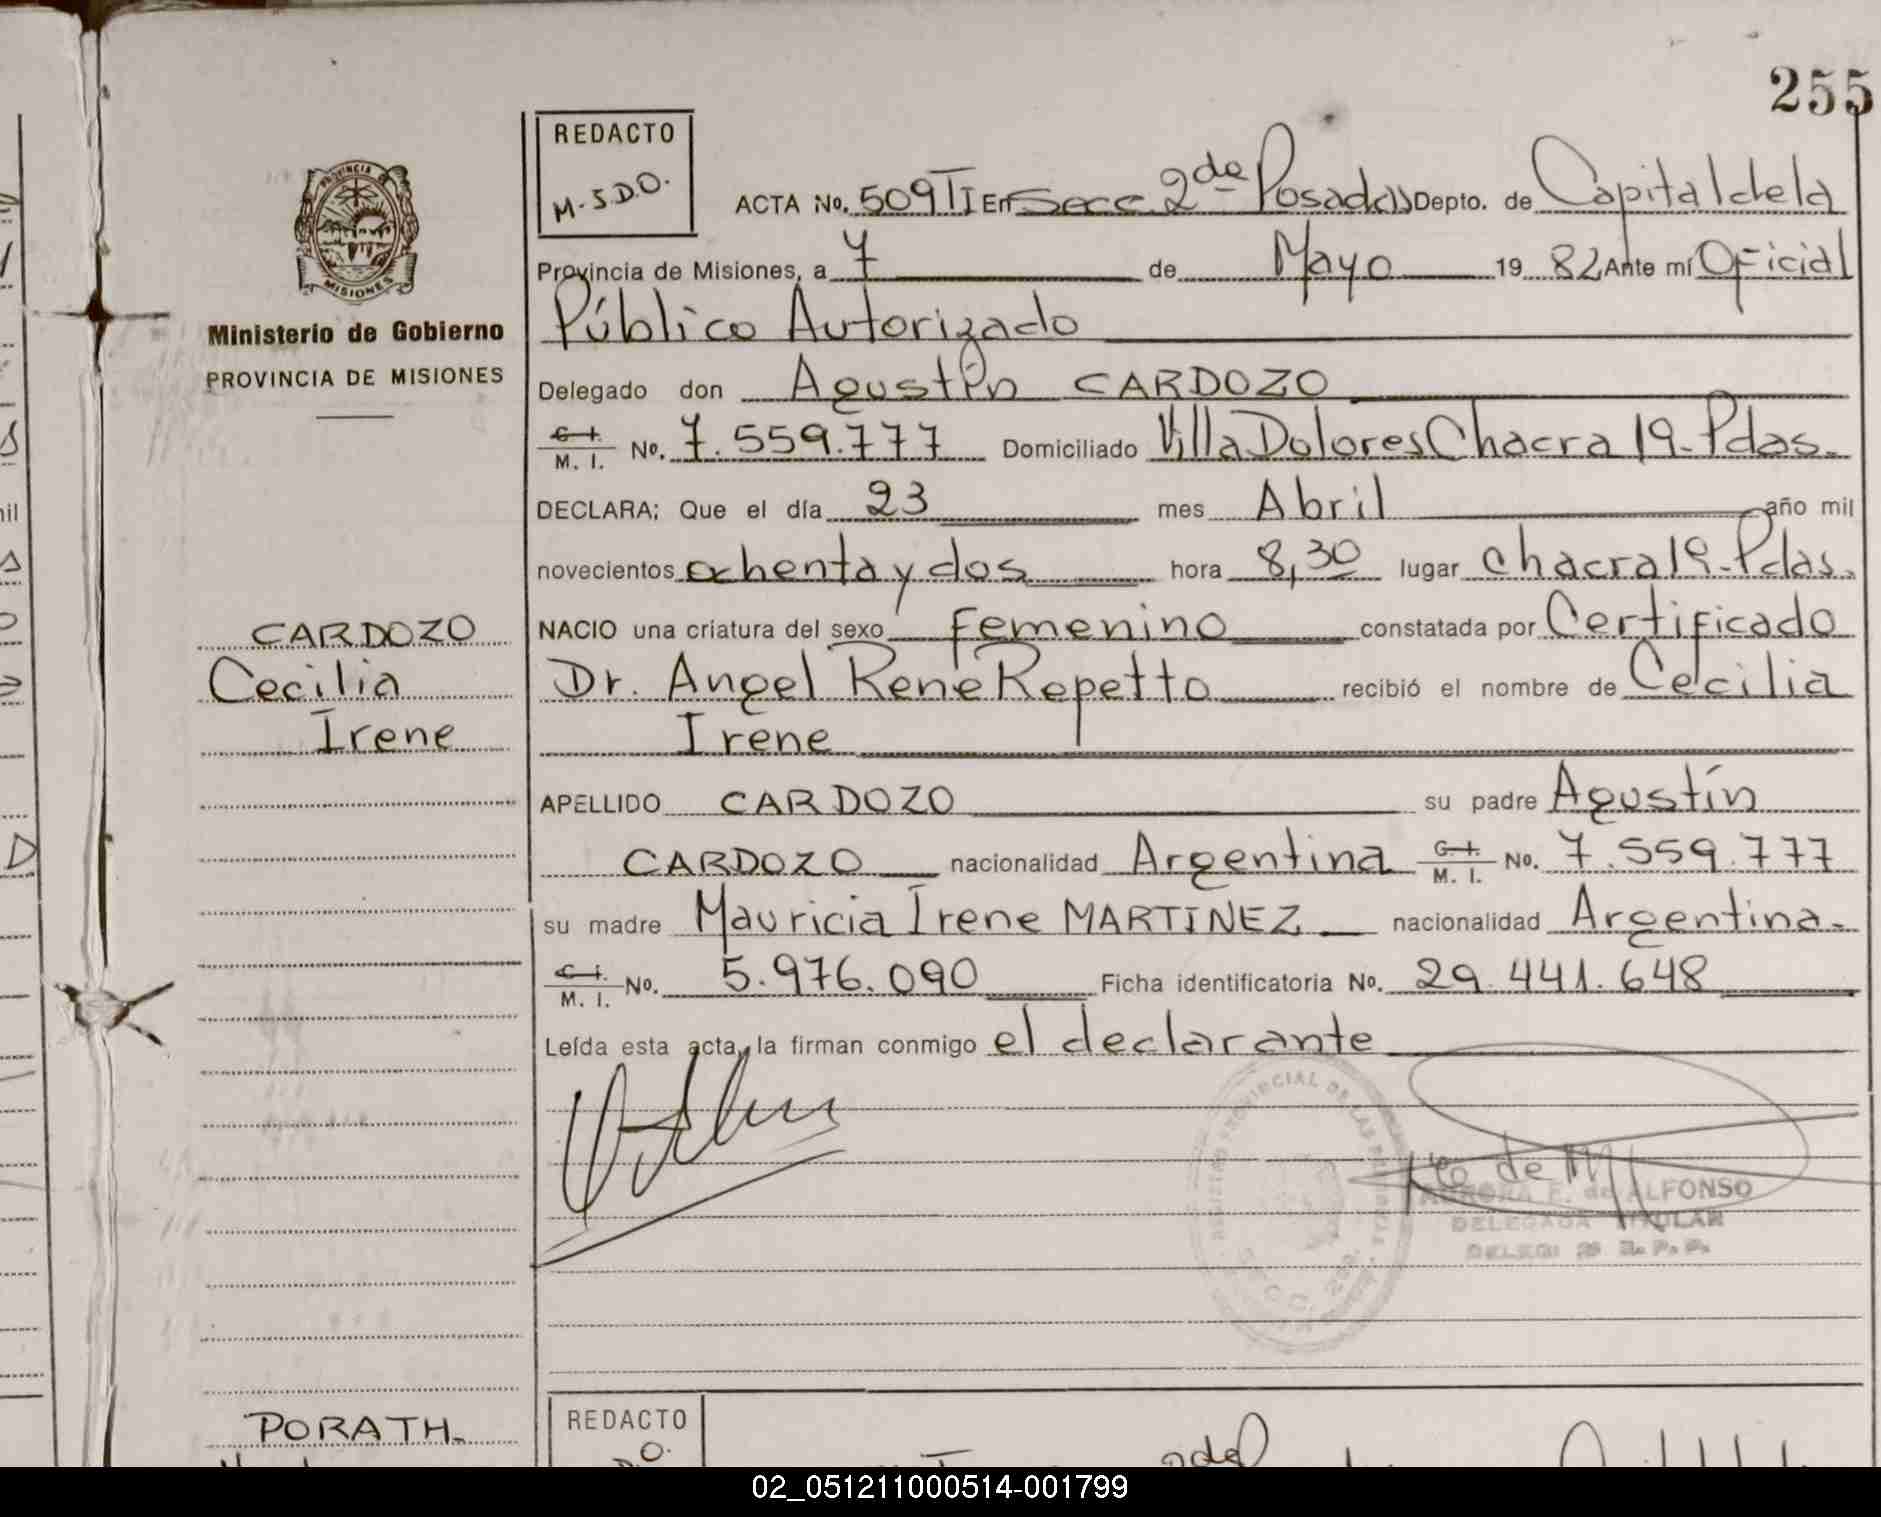 255
REDACTO
M-S.D.O.
ACTA No. 509 TI En Secc 2da Posadas Depto. de Capital de la
Provincia de Misiones, a 7 de Mayo 19 82 Ante mí Oficial
Público Autorizado
PROVINCIA
MISIONES
Ministerio de Gobierno
PROVINCIA DE MISIONES
Delegado don Agustín CARDOZO
C. I.
M. I. No. 7.559.777 Domiciliado Villa Dolores Chacra 19-Pdas.
DECLARA; Que el día 23 mes Abril año mil
novecientos ochenta y dos hora 8,30 lugar chacra 19-Pdas.
NACIO una criatura del sexo femenino constatada por Certificado
Dr. Angel Rene Repetto recibió el nombre de Cecilia
Irene
CARDOZO
Cecilia
Irene
APELLIDO CARDOZO su padre Agustín
CARDOZO nacionalidad Argentina C. I.
M. I. No. 7.559.777
su madre Mauricia Irene MARTINEZ nacionalidad Argentina.
C. I.
M. I. No. 5.976.090 Ficha identificatoria No. 29.441.648
Leída esta acta, la firman conmigo el declarante
PROVINCIAL DE LAS
F. de ALFONSO
DELEGADA TITULAR
PORATH-
REDACTO
02_051211000514-001799